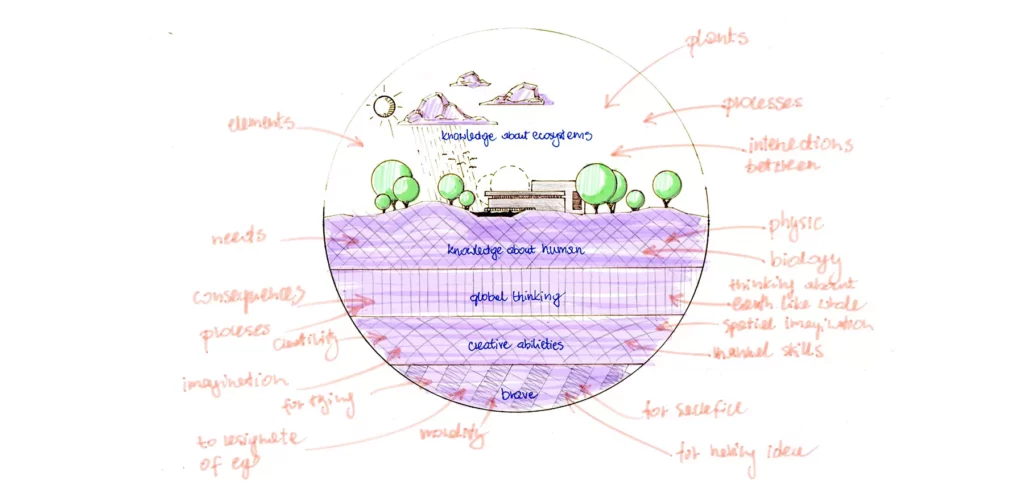 plants
processes
elements
knowledge about ecosystems
interections
between
needs
knowledge about human
physic
biology
consequences
proceses
global thinking
thinking about
earth like whole
creatility
creative abilieties
spatial imagination
mannel skills
imagination
for trying
brave
for sacrefice
to resignate
of ego
morality
for having idea